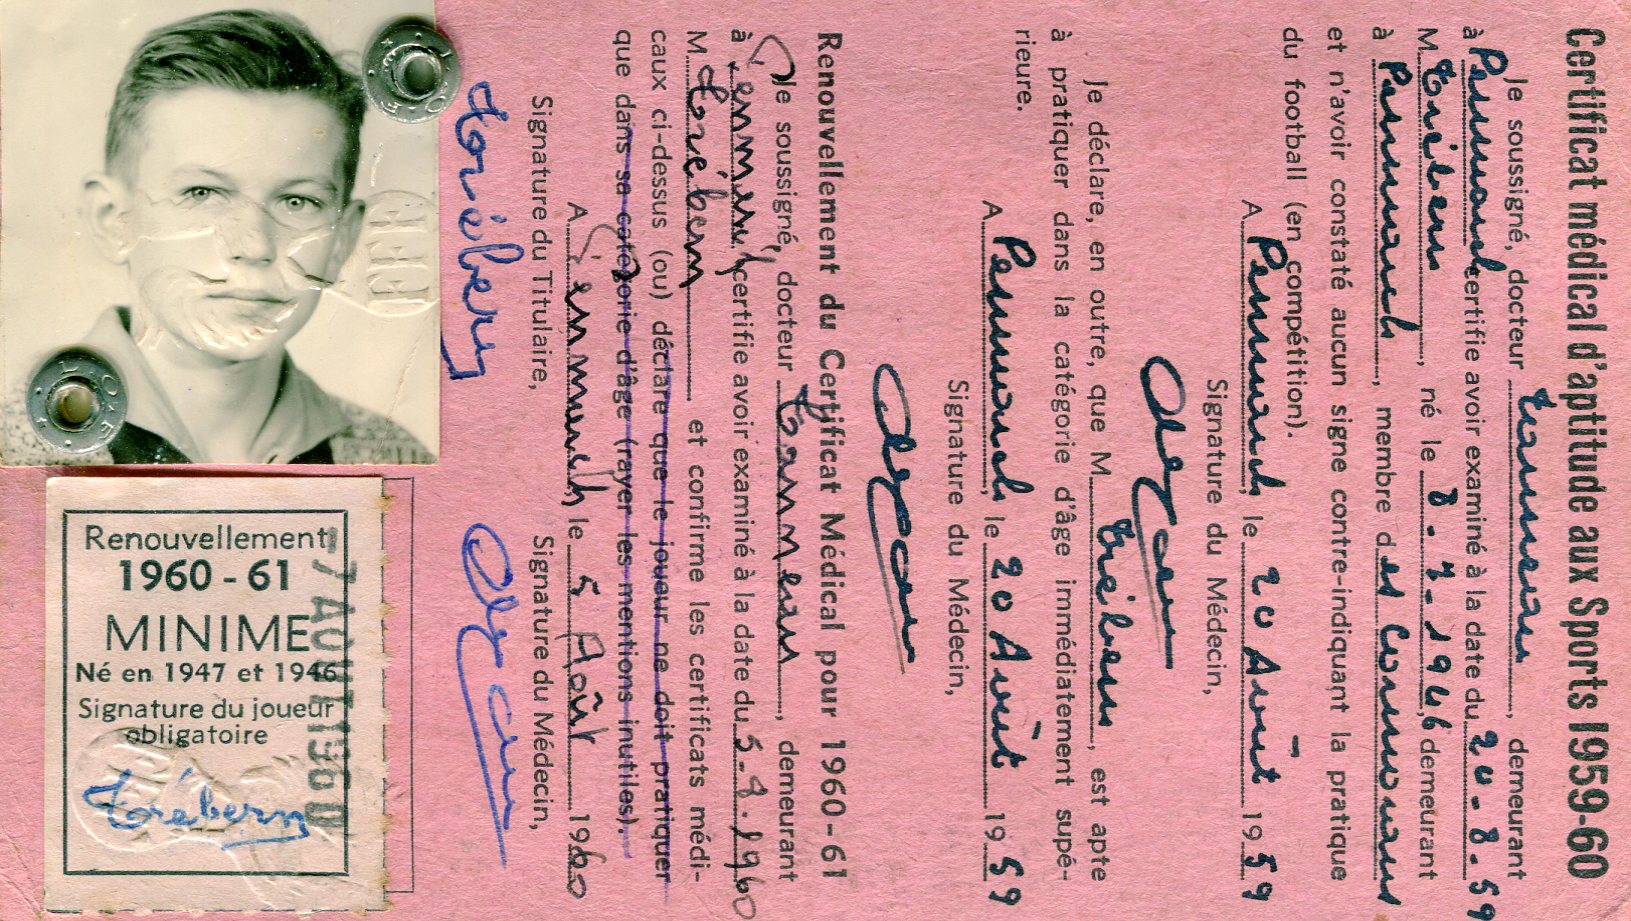 Certificat médical d'aptitude aux Sports 1959-60
Je soussigné, docteur Tanneau, demeurant
à Penmarch certifie avoir examiné à la date du 20-8-59
M. Trébern, né le 8-7-1946, demeurant
à Penmarch, membre des Cormorans
et n'avoir constaté aucun signe contre-indiquant la pratique
du football (en compétition).
A Penmarch, le 20 Août 1959
Signature du Médecin,
Je déclare, en outre, que M. Trébern, est apte
à pratiquer dans la catégorie d'âge immédiatement supé-
rieure.
A Penmarch, le 20 Août 1959
Signature du Médecin,
Renouvellement du Certificat Médical pour 1960-61
Je soussigné, docteur Tanneau, demeurant
à Penmarch certifie avoir examiné à la date du 5-8-1960
M. Trébern et confirme les certificats médi-
caux ci-dessus (ou) déclare que le joueur ne doit pratiquer
que dans sa catégorie d'âge (rayer les mentions inutiles).
A Penmarch, le 5 Août 1960
Signature du Titulaire,
Signature du Médecin,
Trébern
Renouvellement
1960-61
MINIME
Né en 1947 et 1946
Signature du joueur
obligatoire
Trébern
-7 AOUT 1960